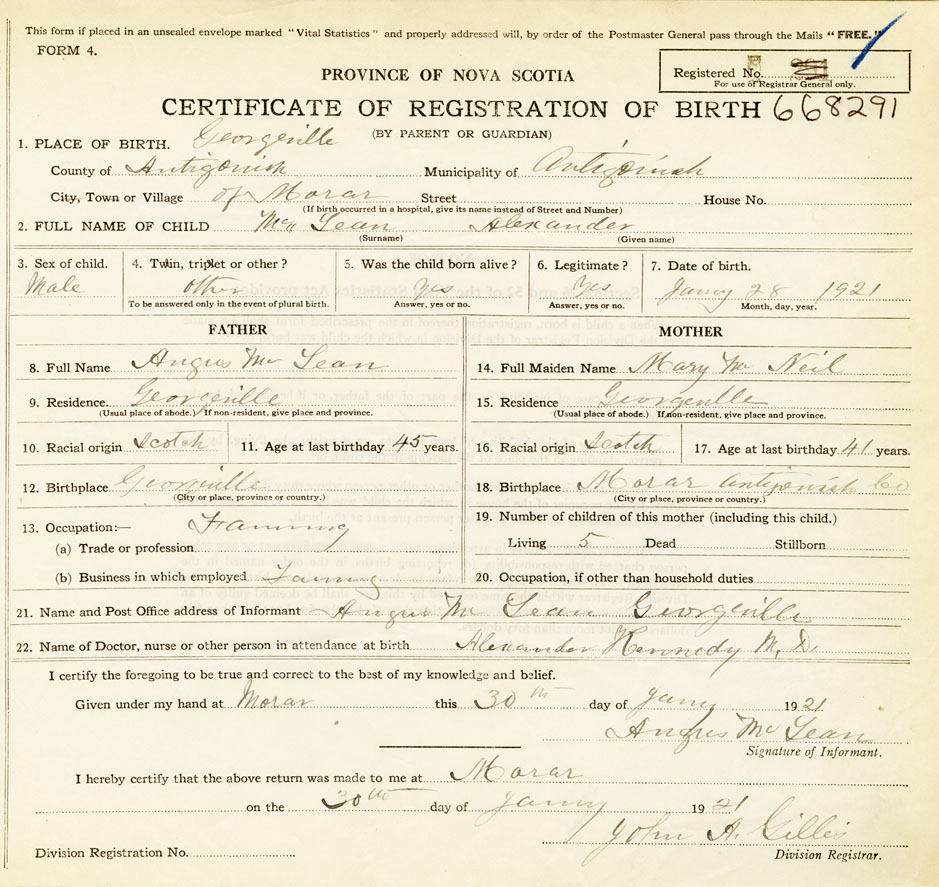 This form if placed in an unsealed envelope marked "Vital Statistics" and properly addressed will, by order of the Postmaster General pass through the Mails "FREE."
FORM 4.
PROVINCE OF NOVA SCOTIA
Registered No.
For use of Registrar General only.
CERTIFICATE OF REGISTRATION OF BIRTH 668291
(BY PARENT OR GUARDIAN)
1. PLACE OF BIRTH. Georgeville
County of Antigonish Municipality of Antigonish
City, Town or Village of Morar Street House No.
(If birth occurred in a hospital, give its name instead of Street and Number)
2. FULL NAME OF CHILD Mc Lean Alexander
(Surname) (Given name)
3. Sex of child. 4. Twin, triplet or other? 5. Was the child born alive? 6. Legitimate? 7. Date of birth.
Male other Yes Yes Jany 28 1921
To be answered only in the event of plural birth. Answer, yes or no. Answer, yes or no. Month, day, year.
FATHER MOTHER
8. Full Name Angus Mc Lean 14. Full Maiden Name Mary Mc Neil
9. Residence. Georgeville 15. Residence Georgeville
(Usual place of abode.) If non-resident, give place and province. (Usual place of abode.) If non-resident, give place and province.
10. Racial origin Scotch 11. Age at last birthday 45 years. 16. Racial origin Scotch 17. Age at last birthday 41 years.
12. Birthplace Georgeville 18. Birthplace Morar Antigonish Co
(City or place, province or country.) (City or place, province or country.)
13. Occupation:— Farming 19. Number of children of this mother (including this child.)
(a) Trade or profession Living 5 Dead Stillborn
(b) Business in which employed Farming 20. Occupation, if other than household duties
21. Name and Post Office address of Informant Angus Mc Lean Georgeville
22. Name of Doctor, nurse or other person in attendance at birth Alexander Kennedy M. D.
I certify the foregoing to be true and correct to the best of my knowledge and belief.
Given under my hand at Morar this 30th day of Jany 1921
Angus Mc Lean
Signature of Informant.
I hereby certify that the above return was made to me at Morar
on the 30th day of Jany 1921
John A. Gillis
Division Registration No. Division Registrar.